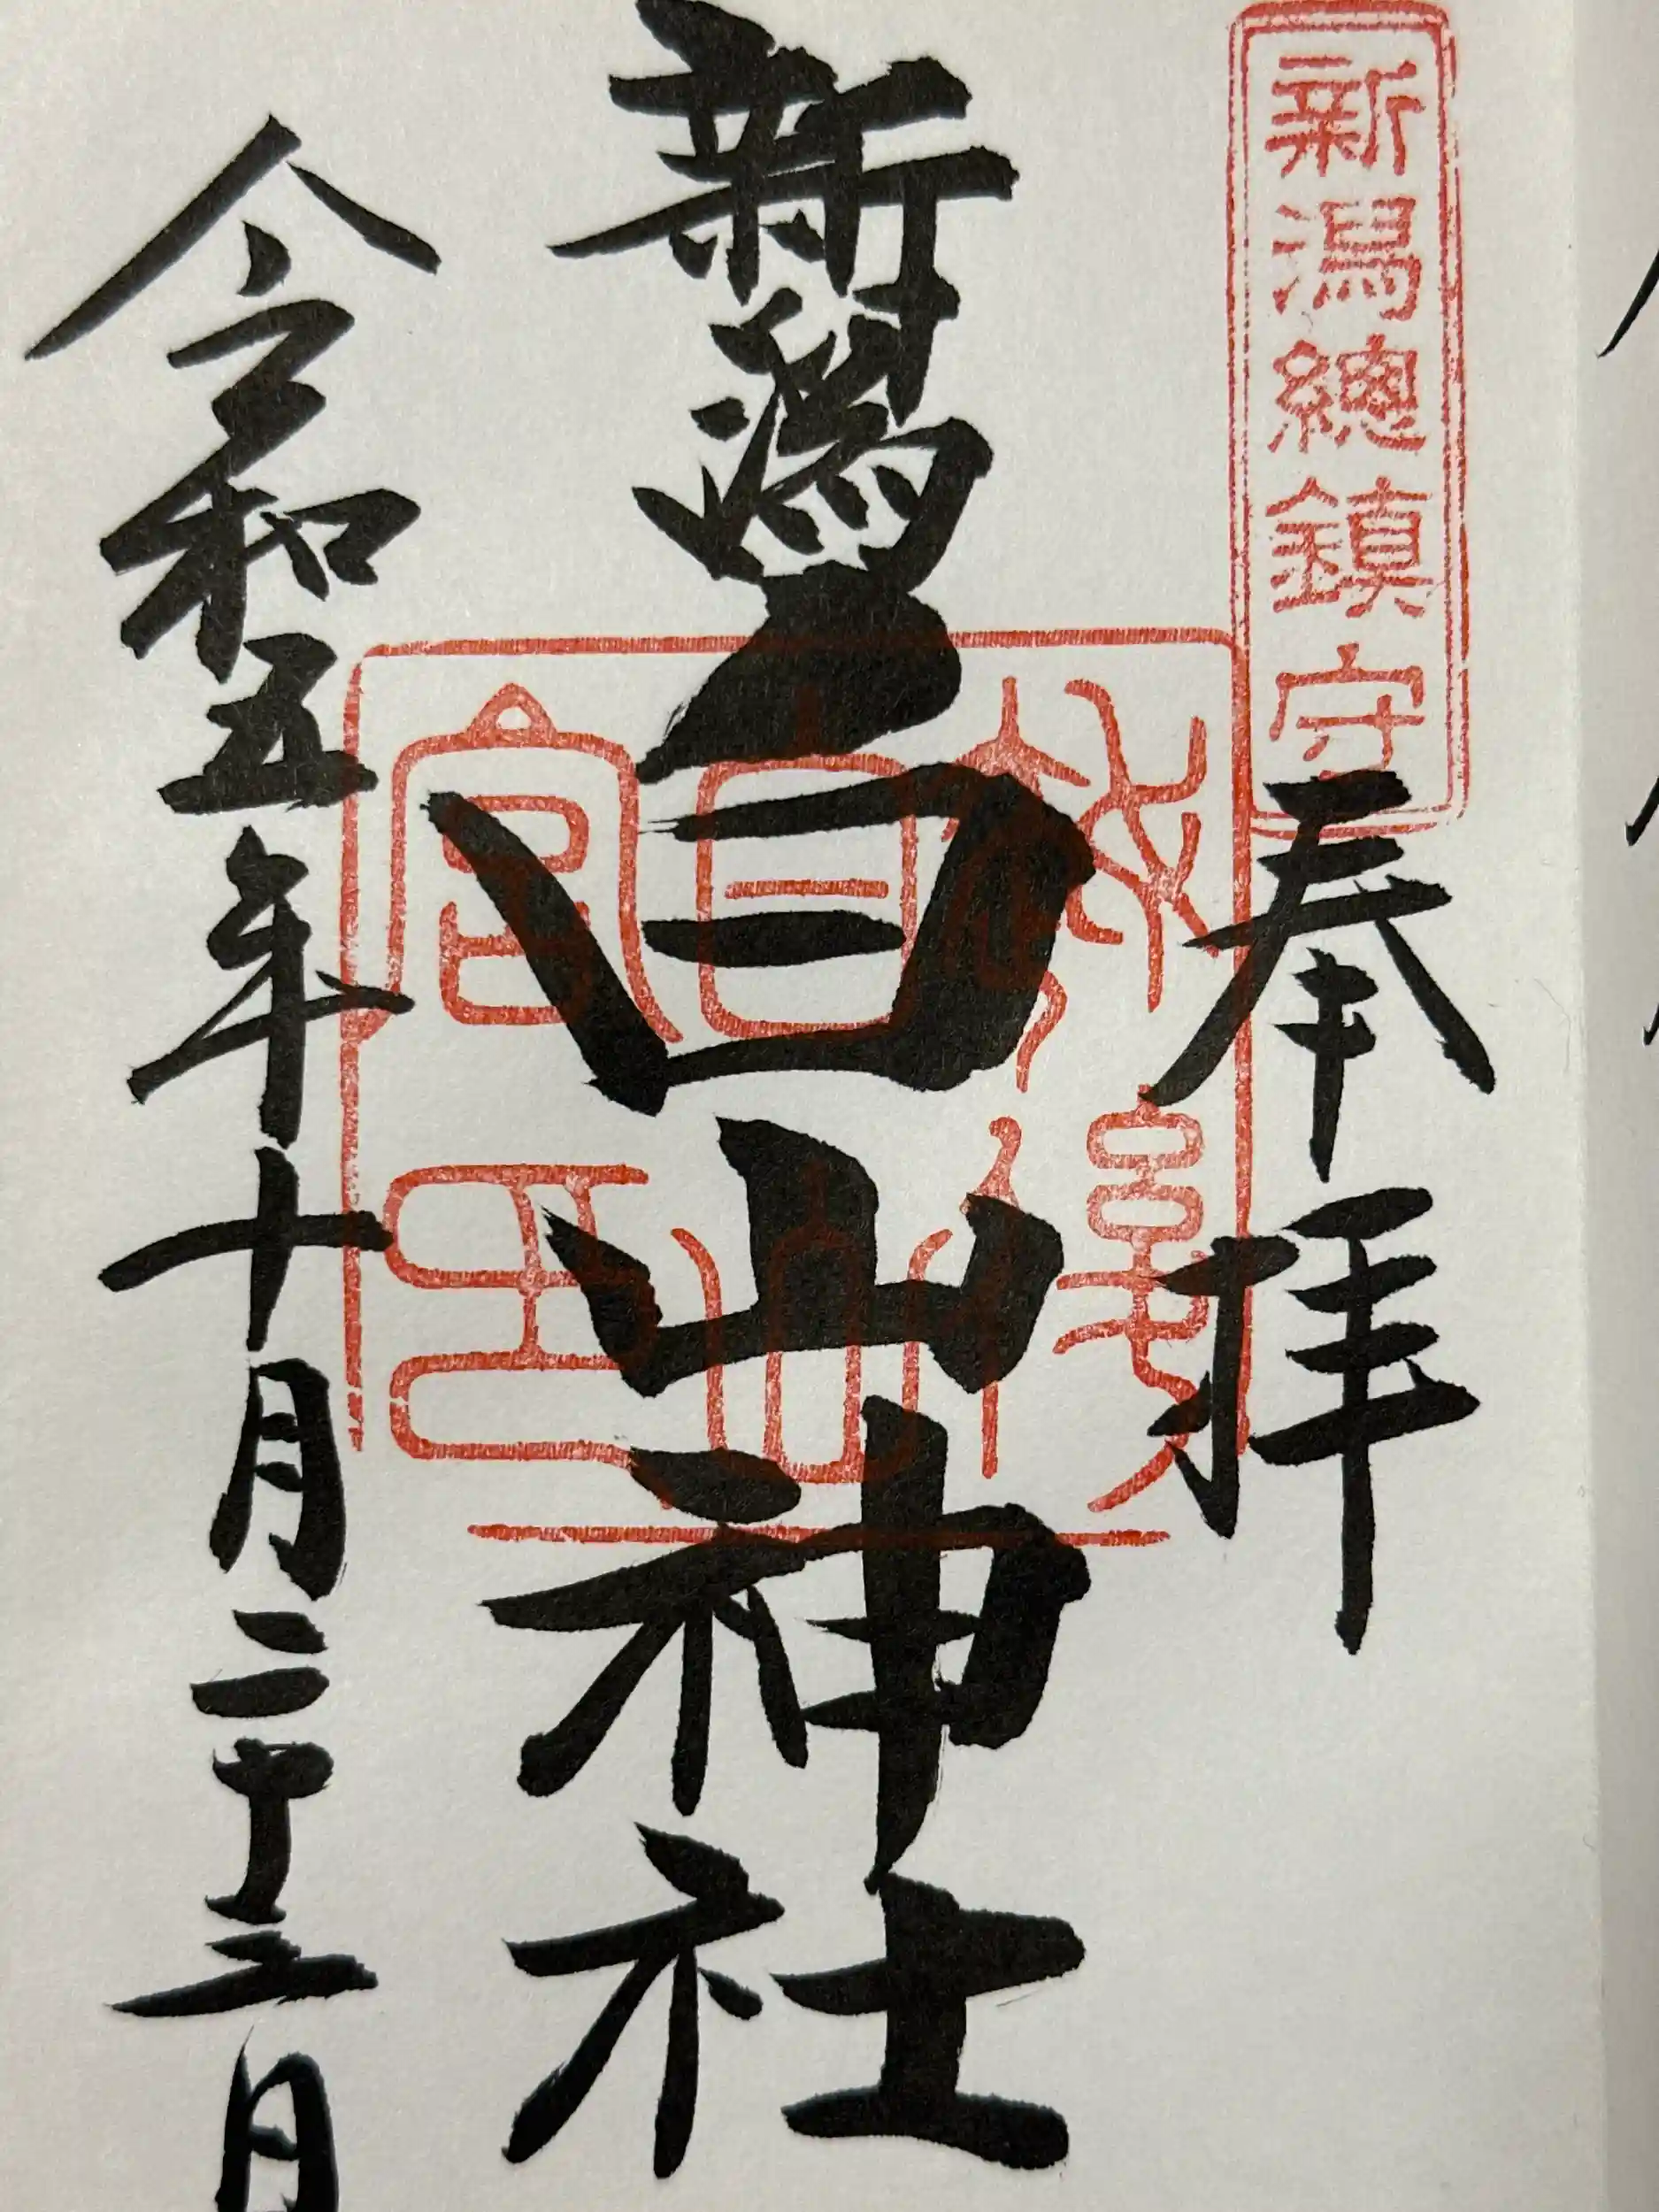 新潟總鎮守
奉拝
新潟白山神社
越後
白山
宮印
令和五年十月二十三日